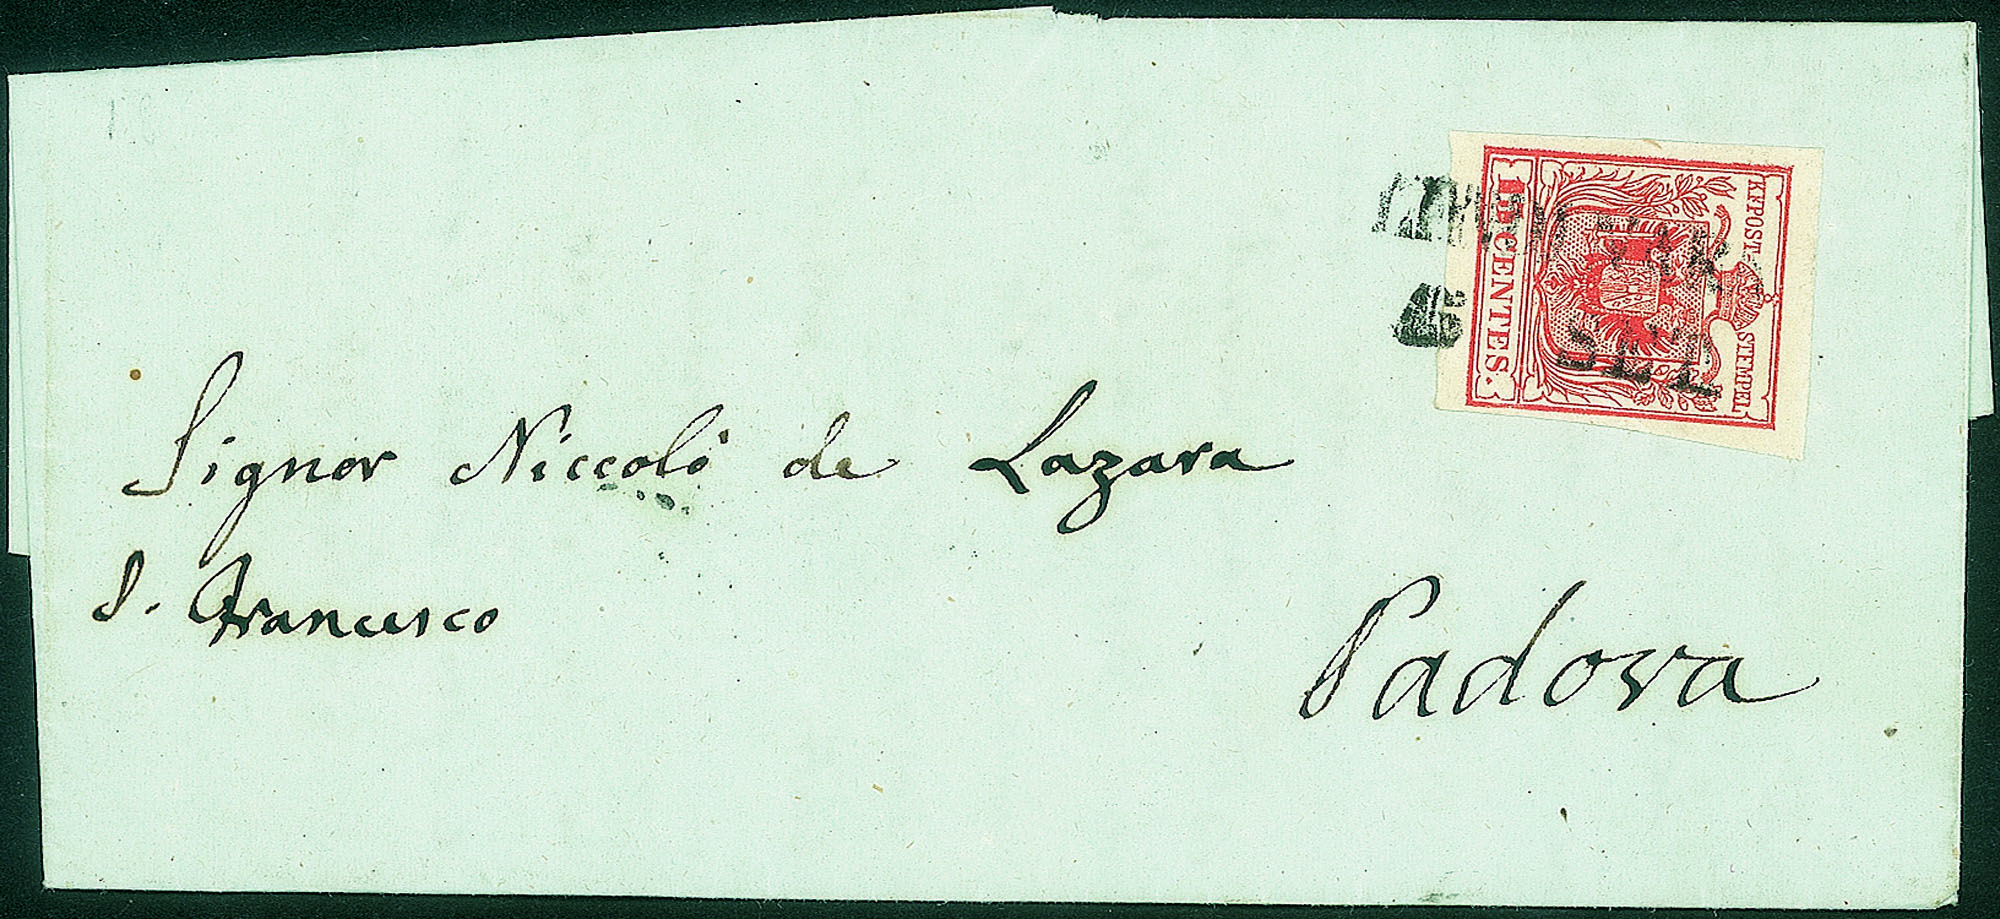 KK POST-STEMPEL
15 CENTES.
SET
Signor Niccolò de Lazara
S. Francesco
Padova